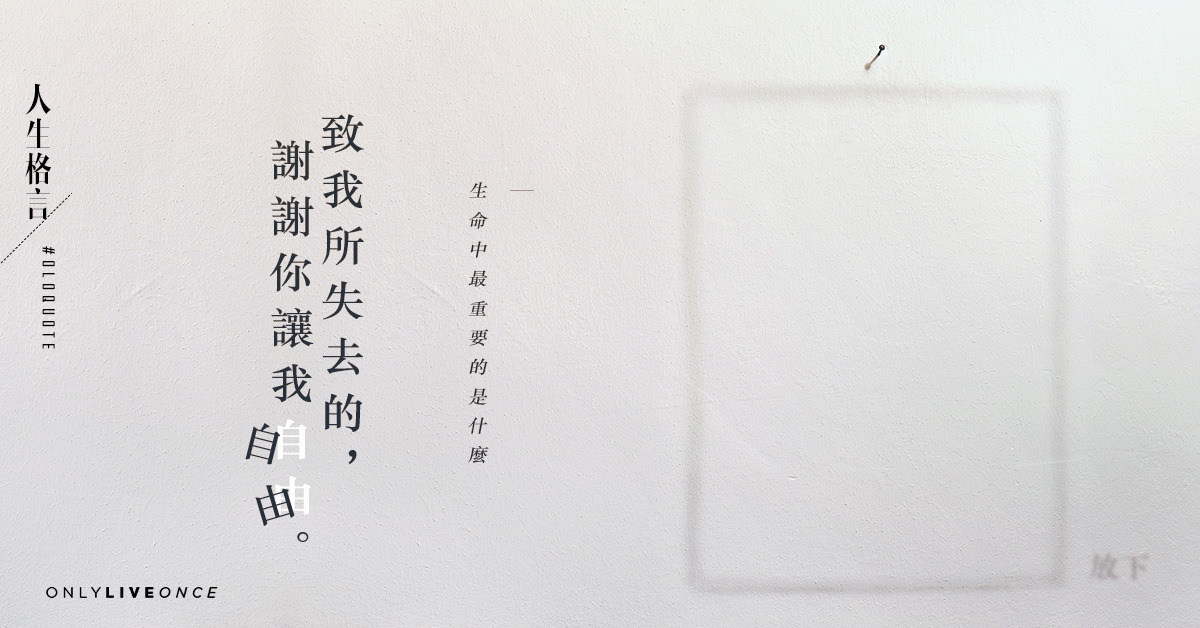 人生格言
#OLOQUOTE
致我所失去的，
謝謝你讓我自由。
生命中最重要的是什麼
放下
ONLYLIVEONCE